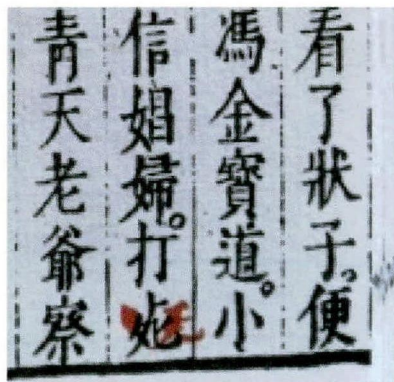 看了狀子。便
馮金寶道。小
信娼婦。打
青天老爺察